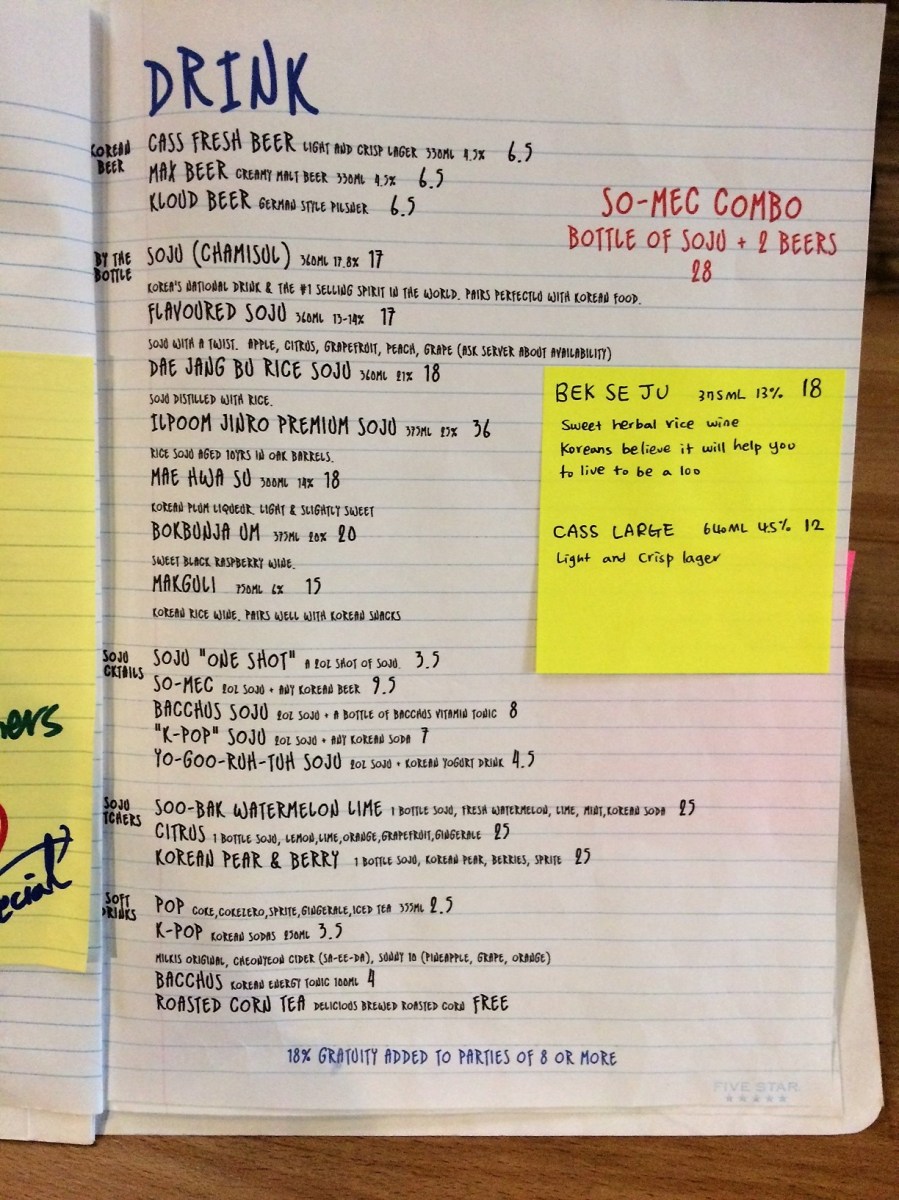 DRINK
KOREAN BEER
CASS FRESH BEER LIGHT AND CRISP LAGER 330ML 4.5% 6.5
MAX BEER CREAMY MALT BEER 330ML 4.5% 6.5
KLOUD BEER GERMAN STYLE PILSNER 6.5
SO-MEC COMBO
BOTTLE OF SOJU + 2 BEERS
28
BY THE BOTTLE
SOJU (CHAMISUL) 360ML 17.8% 17
KOREA'S NATIONAL DRINK & THE #1 SELLING SPIRIT IN THE WORLD. PAIRS PERFECTLU WITH KOREAN FOOD.
FLAVOURED SOJU 360ML 13-14% 17
SOJU WITH A TWIST. APPLE, CITRUS, GRAPEFRUIT, PEACH, GRAPE (ASK SERVER ABOUT AVAILABILITY)
DAE JANG BU RICE SOJU 360ML 21% 18
SOJU DISTILLED WITH RICE.
ILPOOM JINRO PREMIUM SOJU 375ML 25% 36
RICE SOJU AGED 10YRS IN OAK BARRELS.
MAE HWA SU 300ML 14% 18
KOREAN PLUM LIQUEUR. LIGHT & SLIGHTLY SWEET
BOKBUNJA UM 375ML 20% 20
SWEET BLACK RASPBERRY WINE.
MAKGULI 750ML 6% 15
KOREAN RICE WINE. PAIRS WELL WITH KOREAN SNACKS
BEK SE JU 375ML 13% 18
Sweet herbal rice wine
Koreans believe it will help you
to live to be a 100
CASS LARGE 640ML 4.5% 12
Light and Crisp lager
SOJU CKTAILS
SOJU "ONE SHOT" A 2OZ SHOT OF SOJU. 3.5
SO-MEC 2OZ SOJU + ANY KOREAN BEER 9.5
BACCHUS SOJU 2OZ SOJU + A BOTTLE OF BACCHUS VITAMIN TONIC 8
"K-POP" SOJU 2OZ SOJU + ANY KOREAN SODA 7
YO-GOO-RUH-TUH SOJU 2OZ SOJU + KOREAN YOGURT DRINK 4.5
SOJU TCHERS
SOO-BAK WATERMELON LIME 1 BOTTLE SOJU, FRESH WATERMELON, LIME, MINT,KOREAN SODA 25
CITRUS 1 BOTTLE SOJU, LEMON,LIME,ORANGE,GRAPEFRUIT,GINGERALE 25
KOREAN PEAR & BERRY 1 BOTTLE SOJU, KOREAN PEAR, BERRIES, SPRITE 25
SOFT DRINKS
POP COKE,COKEZERO,SPRITE,GINGERALE,ICED TEA 355ML 2.5
K-POP KOREAN SODAS 250ML 3.5
MILKIS ORIGINAL, CHEONYEON CIDER (SA-EE-DA), SUNNY 10 (PINEAPPLE, GRAPE, ORANGE)
BACCHUS KOREAN ENERGY TONIC 100ML 4
ROASTED CORN TEA DELICIOUS BREWED ROASTED CORN FREE
18% GRATUITY ADDED TO PARTIES OF 8 OR MORE
FIVE STAR
hers
ecial